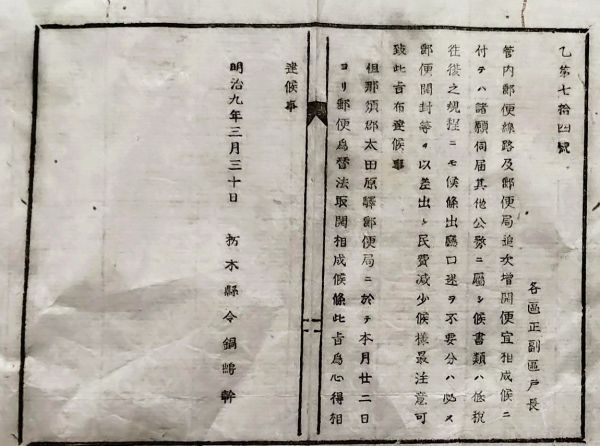 乙第七拾四號
各區正副區戸長
管内郵便線路及郵便局追次増開便宜相成候ニ
付テハ諸願伺届其他公務ニ屬シ候書類ハ低税
往復之規程ニモ候條出廳口述ヲ不要分ハ必ス
郵便開封等ヲ以差出シ民費减少候樣最注意可
致此旨布達候事
但那須郡太田原驛郵便局ニ於テ本月廿二日
ヨリ郵便爲替法取開相成候條此旨爲心得相
達候事
明治九年三月三十日
栃木縣令鍋島幹